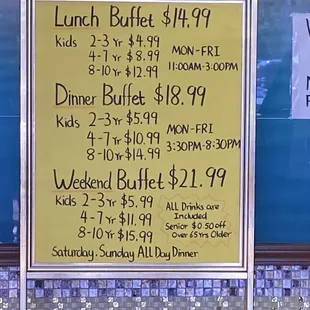 Lunch Buffet $14.99
Kids 2-3 yr $4.99
4-7 yr $8.99
8-10 yr $12.99
MON-FRI
11:00AM-3:00PM
Dinner Buffet $18.99
Kids 2-3 yr $5.99
4-7 yr $10.99
8-10 yr $14.99
MON-FRI
3:30PM-8:30PM
Weekend Buffet $21.99
Kids 2-3 yr $5.99
4-7 yr $11.99
8-10 yr $15.99
ALL Drinks are
Included
Senior $0.50 off
Over 65 Yrs Older
Saturday. Sunday ALL Day Dinner